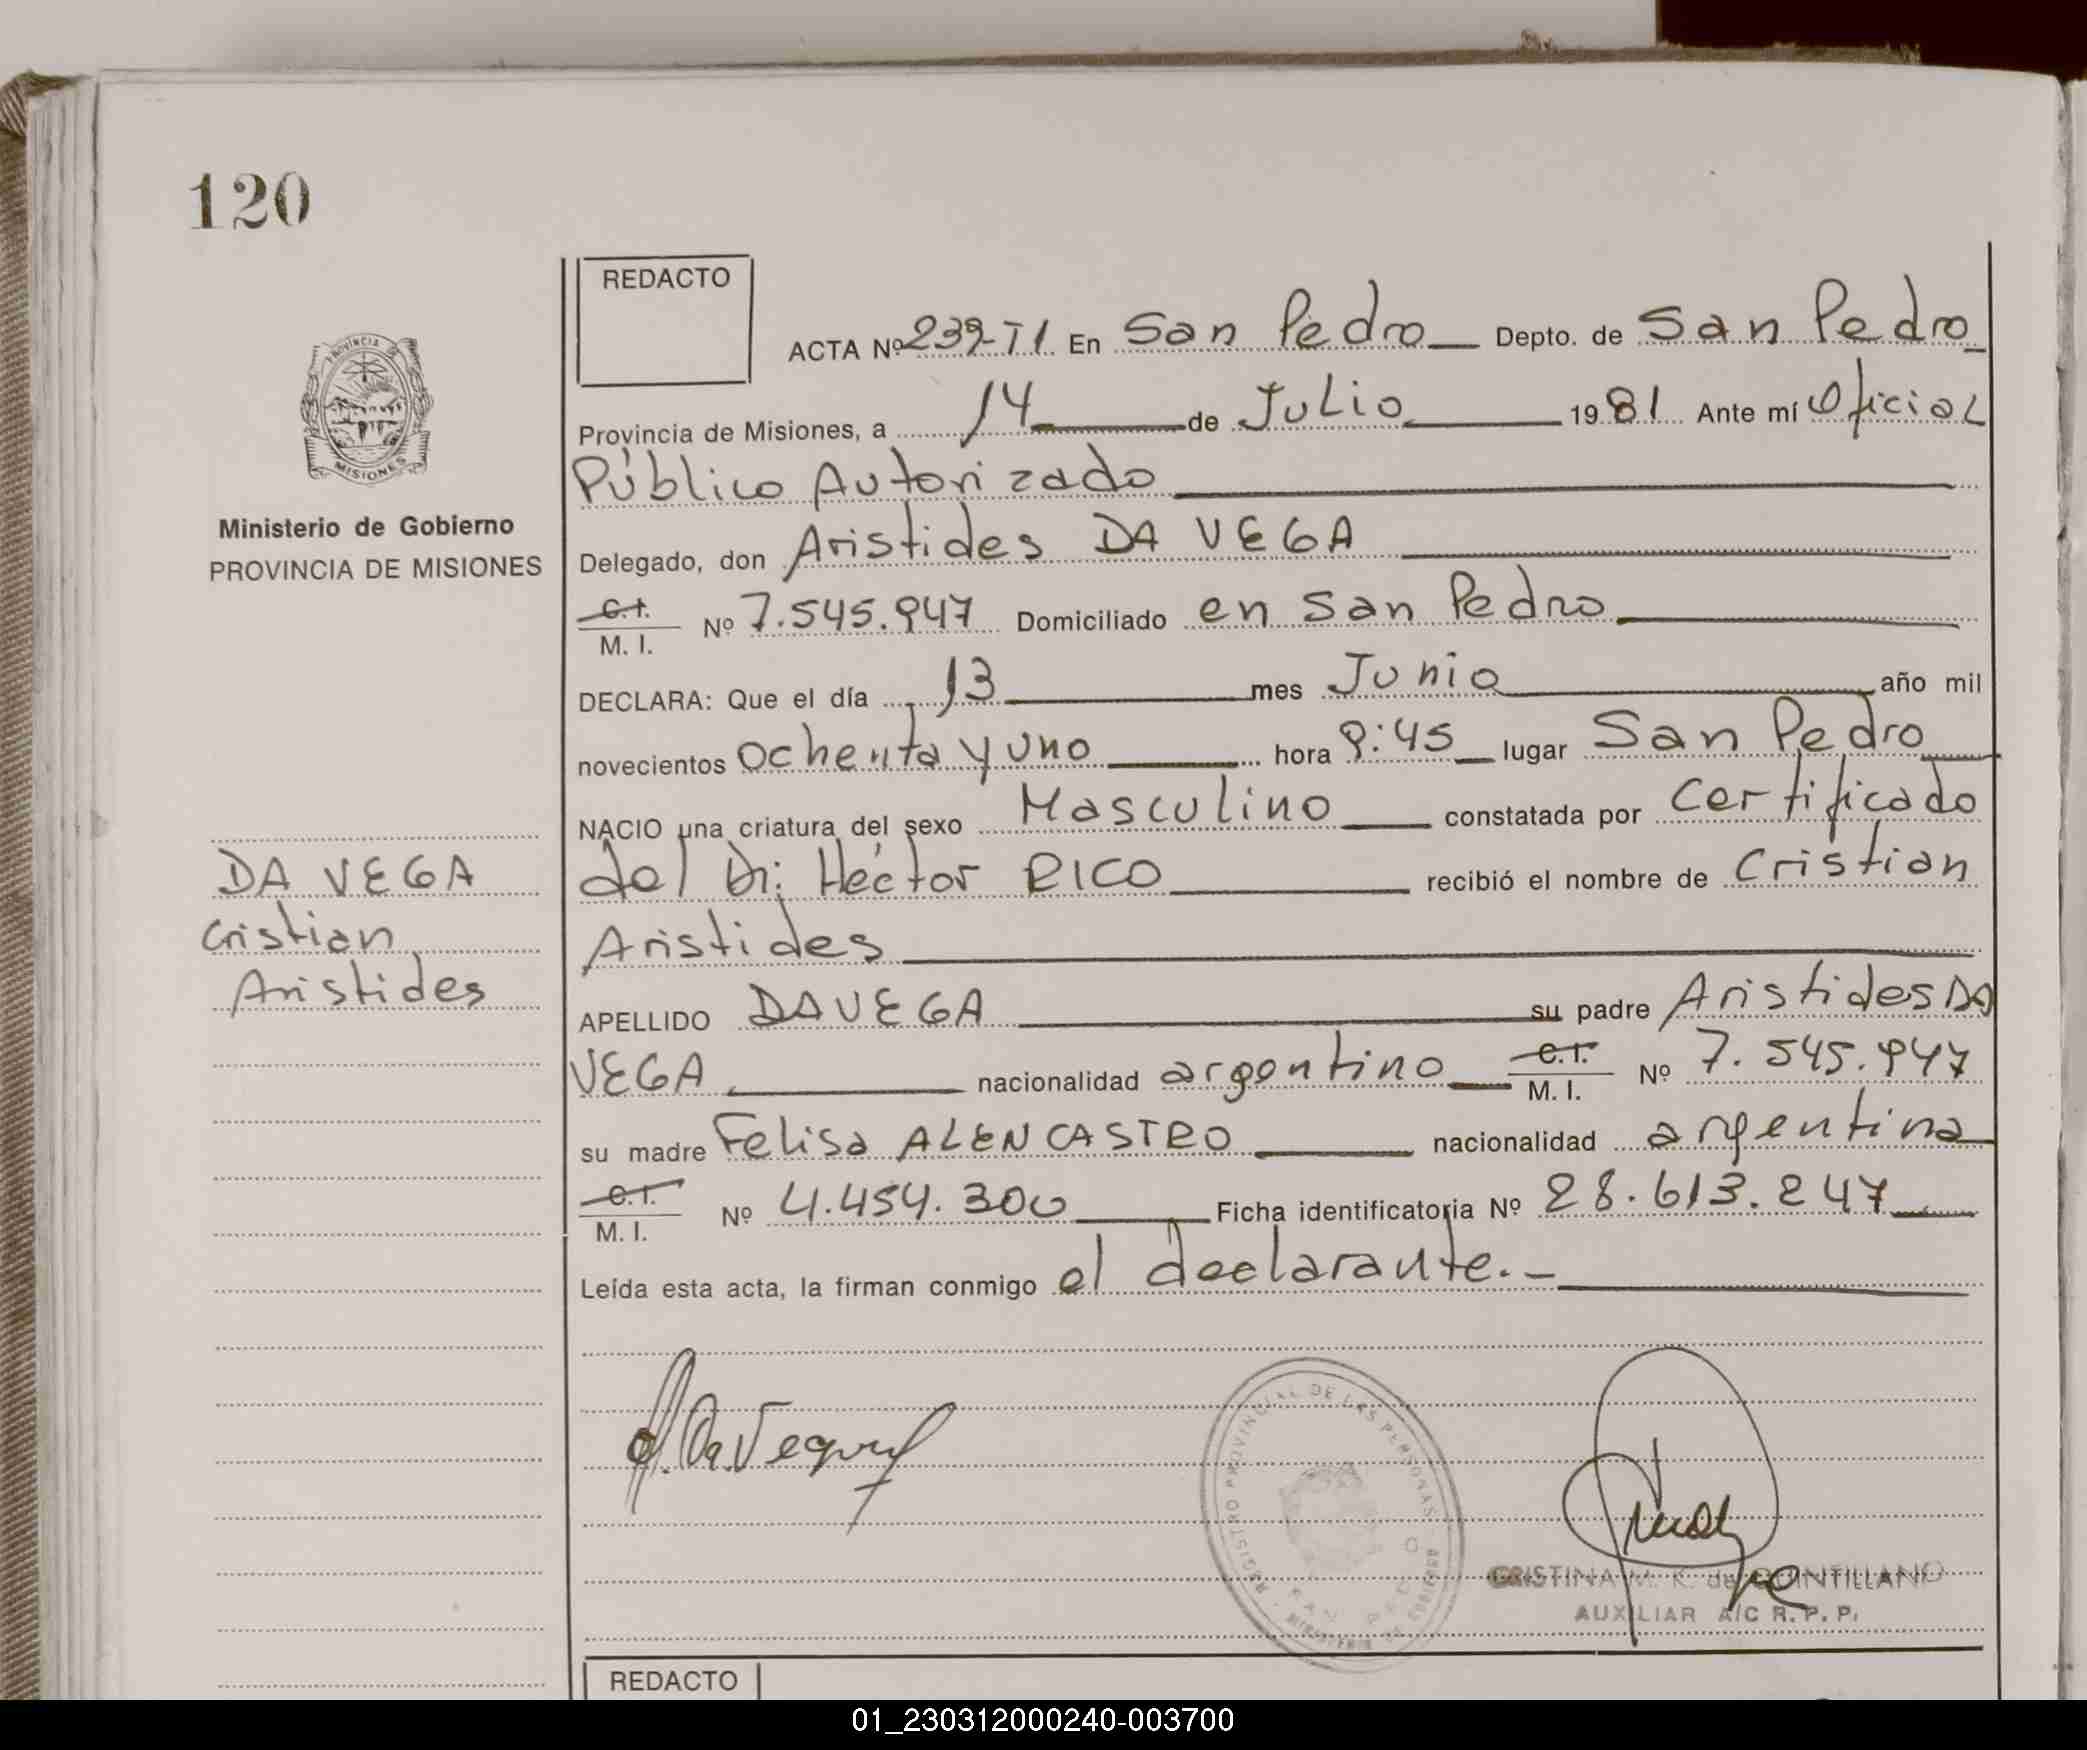 120
REDACTO
ACTA Nº 239-T1. En San Pedro Depto. de San Pedro
Provincia de Misiones, a 14 de Julio 1981 Ante mí Oficial
Público Autorizado
Ministerio de Gobierno
PROVINCIA DE MISIONES
Delegado, don Aristides DA VEGA
C.I.
M. I. Nº 7.545.947 Domiciliado en San Pedro
DECLARA: Que el día 13 mes Junio año mil
novecientos ochenta y uno hora 9:45 lugar San Pedro
NACIO una criatura del sexo Masculino constatada por Certificado
del Dr: Héctor RICO recibió el nombre de Cristian
Aristides
DA VEGA
Cristian
Aristides
APELLIDO DA VEGA su padre Aristides DA
VEGA nacionalidad argentino C.I.
M. I. Nº 7.545.947
su madre Felisa ALENCASTRO nacionalidad argentina
C.I.
M. I. Nº 4.454.300 Ficha identificatoria Nº 28.613.247
Leída esta acta, la firman conmigo el declarante.-
A. Da Vega
REGISTRO PROVINCIAL DE LAS PERSONAS
SAN PEDRO
MINISTERIO DE GOBIERNO
CRISTINA M. K. de QUINTILLANO
AUXILIAR A/C R. P. P.
REDACTO
01_230312000240-003700